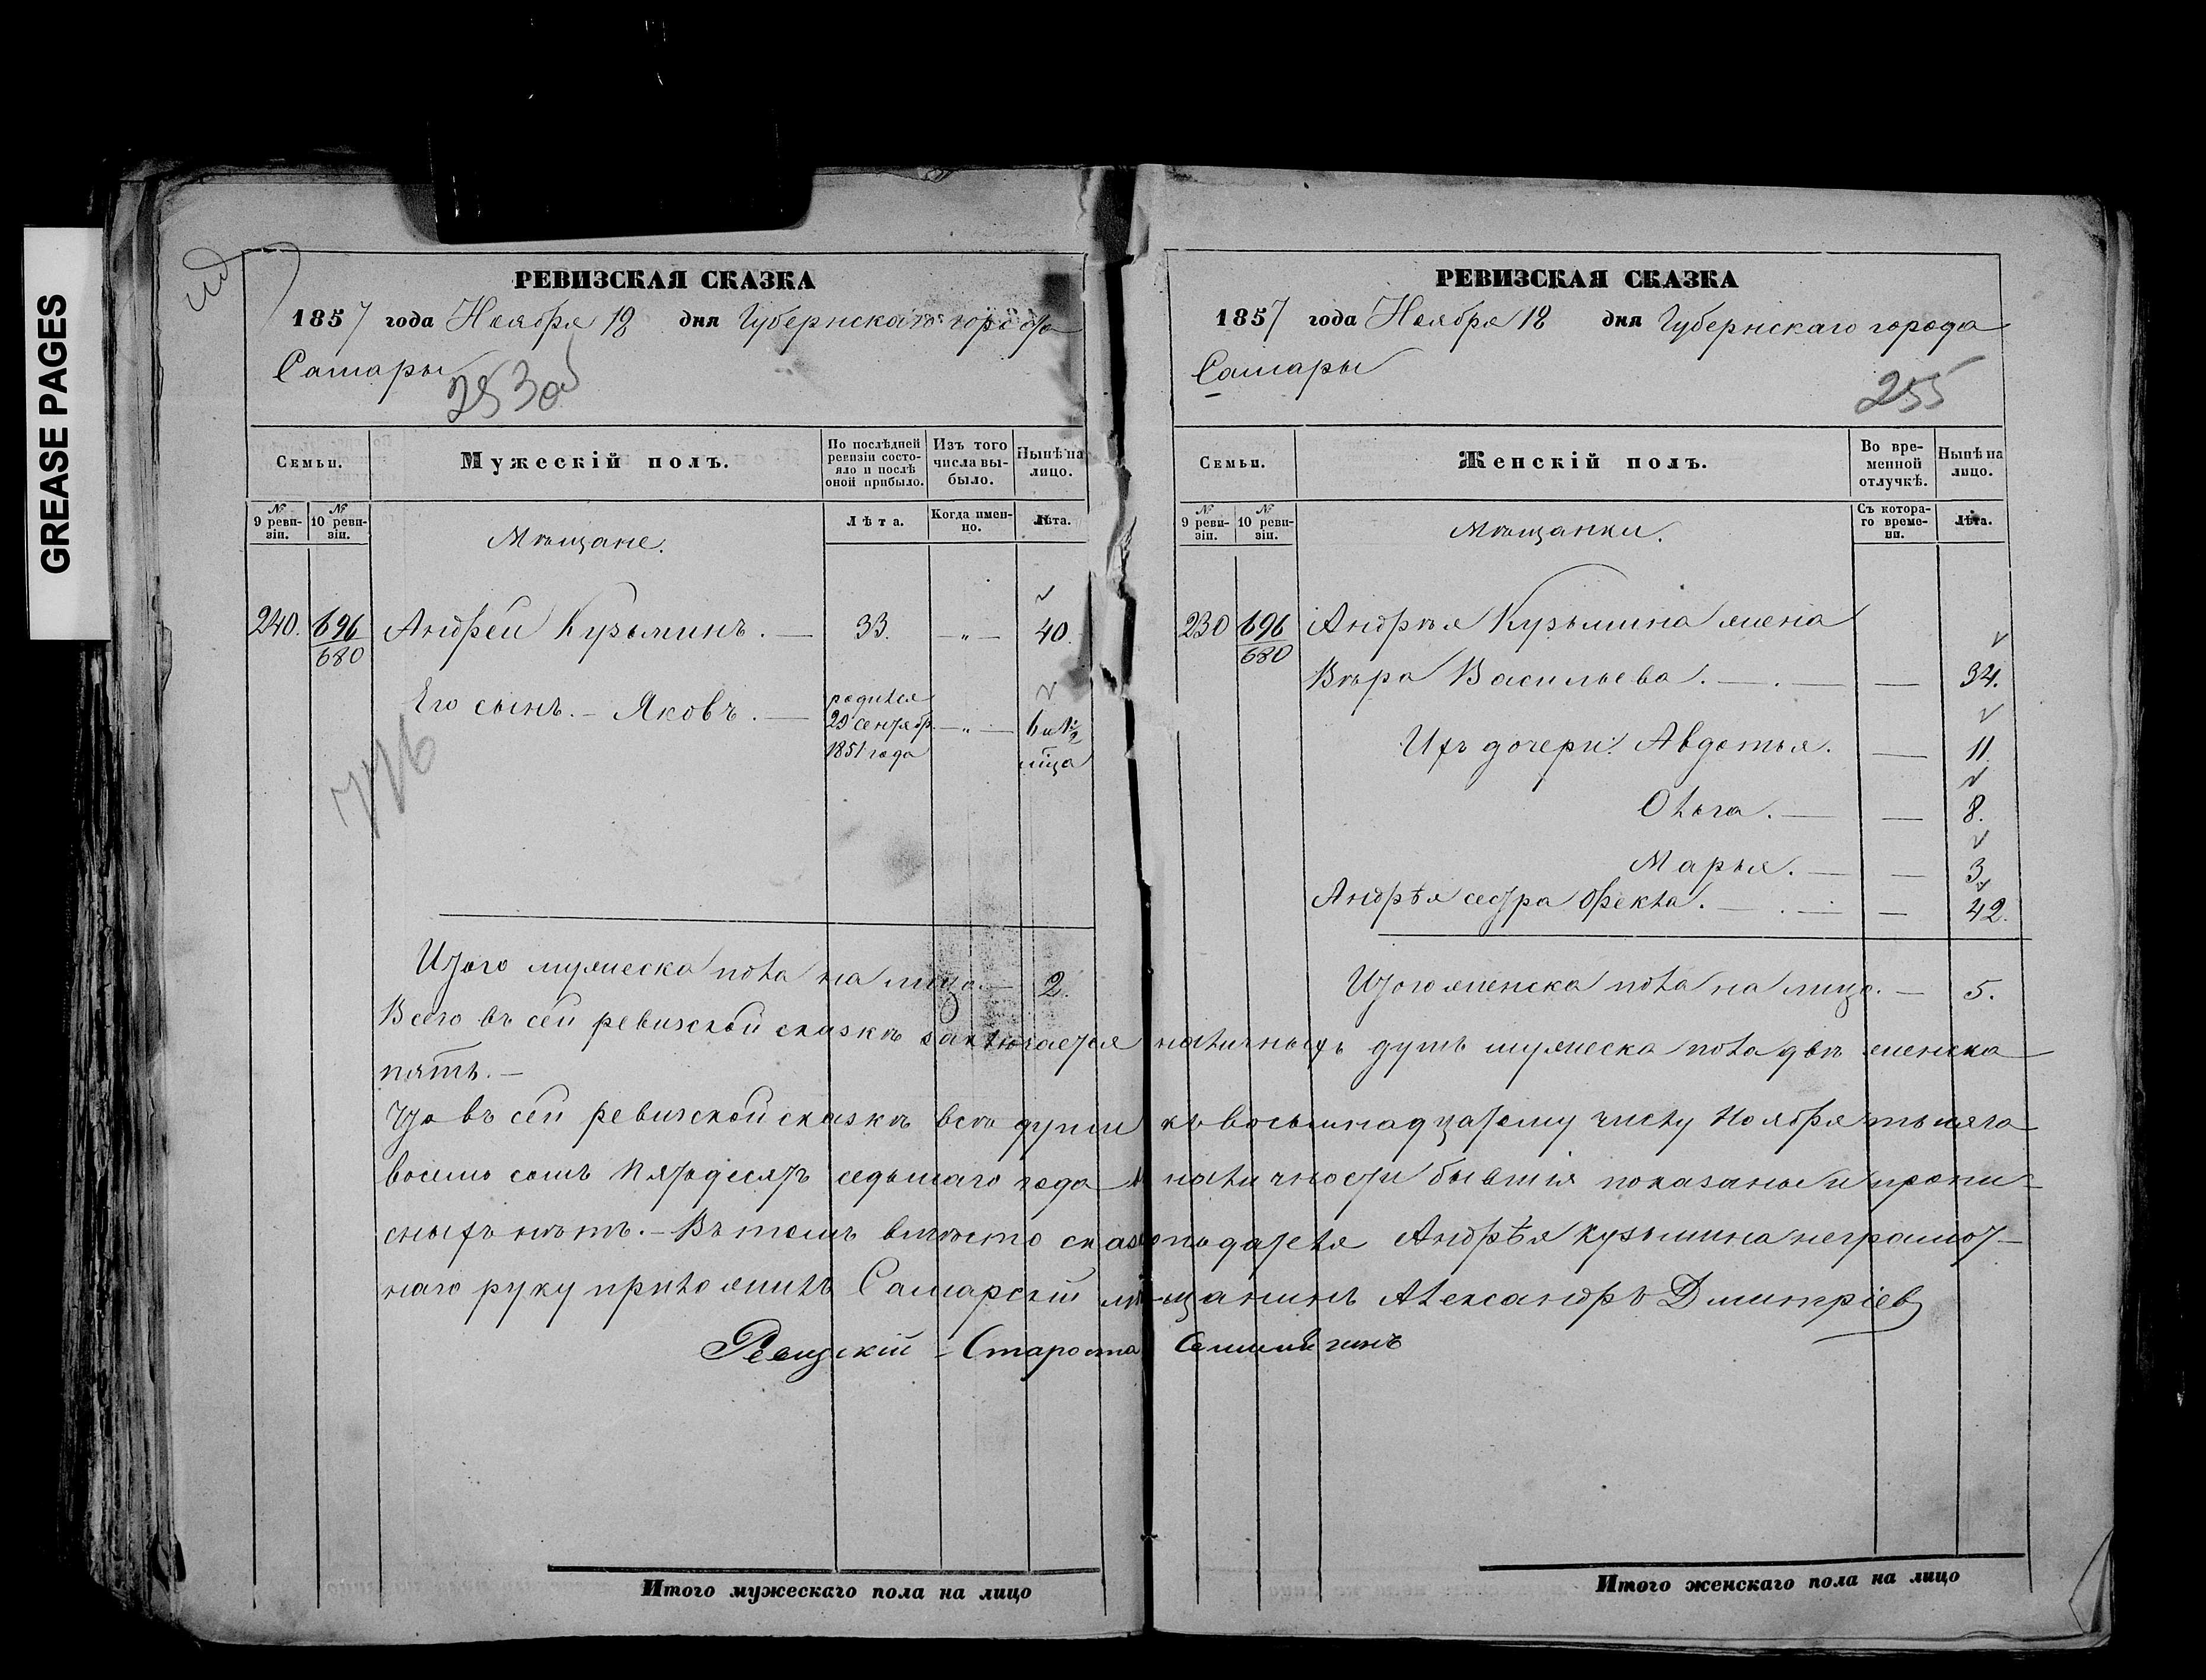 GREASE PAGES
РЕВИЗСКАЯ СКАЗКА
1857 года Ноября 18 дня Губернскаго города
Самары
253 об
Семьи.
Мужескій полъ.
По послѣдней ревизіи состояло и послѣ оной прибыло.
Изъ того числа выбыло.
Нынѣ на лицо.
№ 9 ревизіи.
№ 10 ревизіи.
Мѣщане.
Лѣта.
Когда именно.
Лѣта.
240. 696/680 Андрей Кузьминъ. — 33. — „ — 40.
Его сынъ. – Яковъ. — родился
29 сентябр. — „ —
1851 года
776
Итого мужеска пола на лицо. — 2.
РЕВИЗСКАЯ СКАЗКА
1857 года Ноября 18 дня Губернскаго города
Самары
255
Семьи.
Женскій полъ.
Во временной отлучкѣ.
Нынѣ на лицо.
№ 9 ревизіи.
№ 10 ревизіи.
Мѣщанки.
Съ котораго времени.
Лѣта.
230 696/680 Андрѣя Кузьмина жена
Вѣра Васильева. — . — — 34.
Ихъ дочери: Авдотья. — 11.
Ольга. — — 8.
Марья. — — 3
Андрѣя сестра Фекла. — . — — 42.
Итого женска пола на лицо. — 5.
Всего въ сей ревизской сказкѣ заключается наличныхъ душъ мужеска пола двѣ женска
пять. –
Что въ сей ревизской сказкѣ всѣ души къ восьмнадцатому числу Ноября тысяча
восемь сотъ пятьдесятъ седьмаго года в наличности бывшія показаны и пропи-
сныхъ нѣтъ. – Въ томъ вмѣсто сказкоподателя Андрѣя Кузьмина неграмот-
наго руку приложилъ Самарскій мѣщанинъ Александръ Дмитріев
Ревизскій – Староста
Итого мужескаго пола на лицо
Итого женскаго пола на лицо